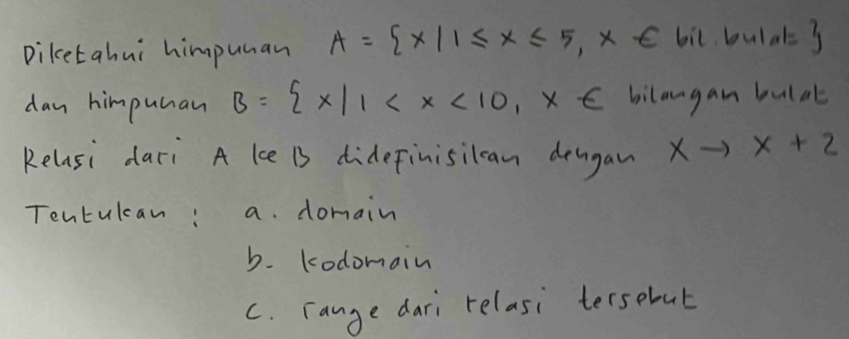 Diketahui himpunan A = {x | 1 ≤ x ≤ 5, x € bil. bulat}
dan himpunan B = {x | 1 < x < 10, x € bilangan bulat
Relasi dari A ke B didefinisikan dengan x → x + 2
Tentukan : a. domain
b. kodomain
c. range dari relasi tersebut